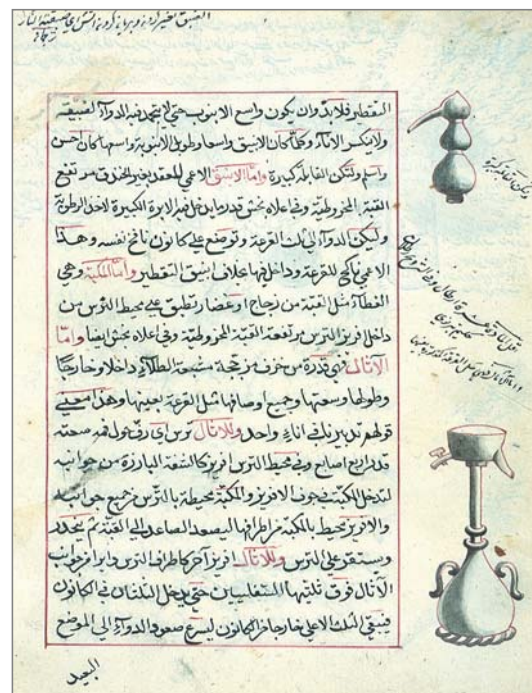 للتقطير فلابد وان يكون واسع الانبوب حتى لا يتجمد فيه الدواء لضيقه
ولا يكسر الاناء وكلما كان الانبيق واسعا وطويل الانبوبة واسعها كان احسن
واسلم ولتكن القابلة كبيرة واما الانبيق الاعمى للعقد بغير الخندق مرتفع
القبة المخروطية وفى اعلاه بخش قدر ما يدخل فيه الابرة الكبيرة لاجل الرطوبة
وليكن الدواء الى ثلث القرعة وتوضع على كانون نافخ نفسه وهذا
الاعمى للقرعة وداخل فيها بخلاف انبيق التقطير واما المكبة وهى
الغطاء مثل القبة من زجاج او غضار تنطبق على محيط الترس من
داخل افريز الترس مرتفعة القبة المخروطية وفى اعلاه بخش ايضا واما
الاثال فهى قدرة من خزف مزججة مشبعة الطلاء داخلا وخارجا
وطولها وسعتها وجميع اوصافها مثل القرعة بعينها وهذا معنى
قولهم تدبيرنا فى اناء واحد وللاثال ترس اى رف حول فمه سعته
قدر اربع اصابع وفى محيط الترس افريز كالشفة البارزة من جوانبه
لتدخل المكبة فى جوف الافريز والمكبة محيطة بالترس من جميع جوانبه
والافريز محيط بالمكبة من اطرافها ليصعد الصاعد الى القبة ثم ينحدر
ويستقر على الترس وللاثال افريز آخر كاطراف الترس دايرا من جوانب
الاثال فوق ثلثيها السفليين حتى يدخل الثلثان فى الكانون
فيبقى الثلث الاعلى خارجا من الكانون ليسرع صعود الدواء الى الموضع
البعيد